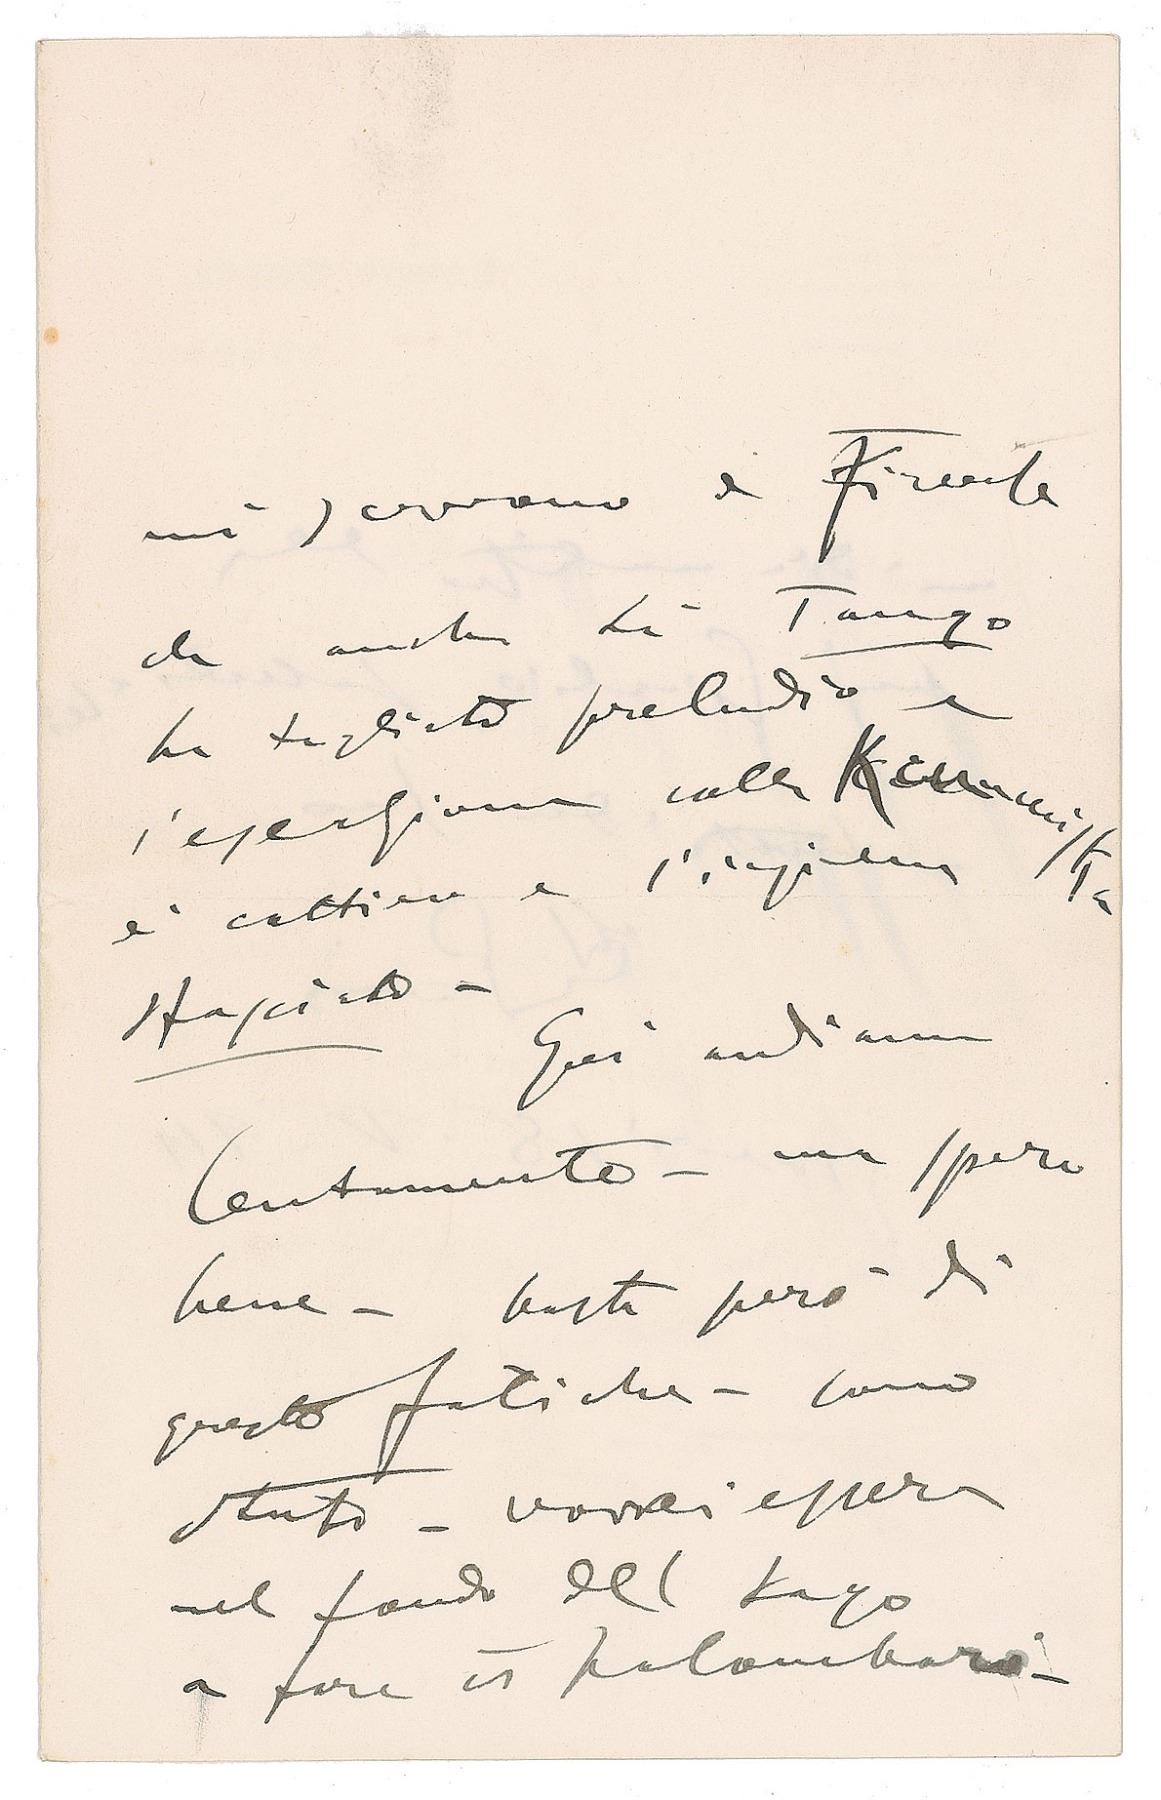 mi scrivono Firenze
che anche lì Tango
ha tagliato preludio e
l'esecuzione colla
è cattiva e l'insieme
Qui andiamo
lentamente - ma spero
bene - basta però di
queste fatiche - sono
stufo - vorrei essere
nel fondo del lago
a fare il palombaro -